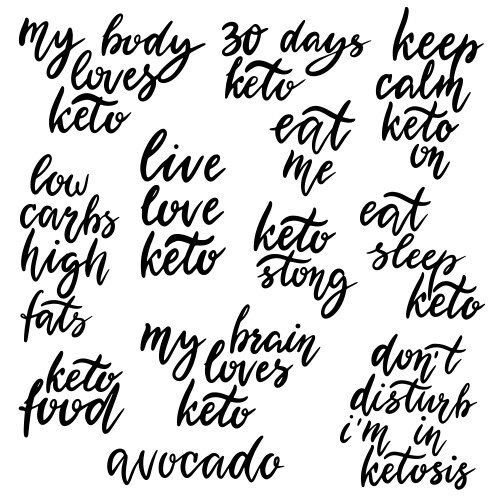 my body
loves
keto
30 days
keto
keep
calm
keto
on
eat
me
low
carbs
high
fats
live
love
keto
keto
stong
eat
sleep
keto
my brain
loves
keto
keto
food
don't
disturb
i'm in
ketosis
avocado